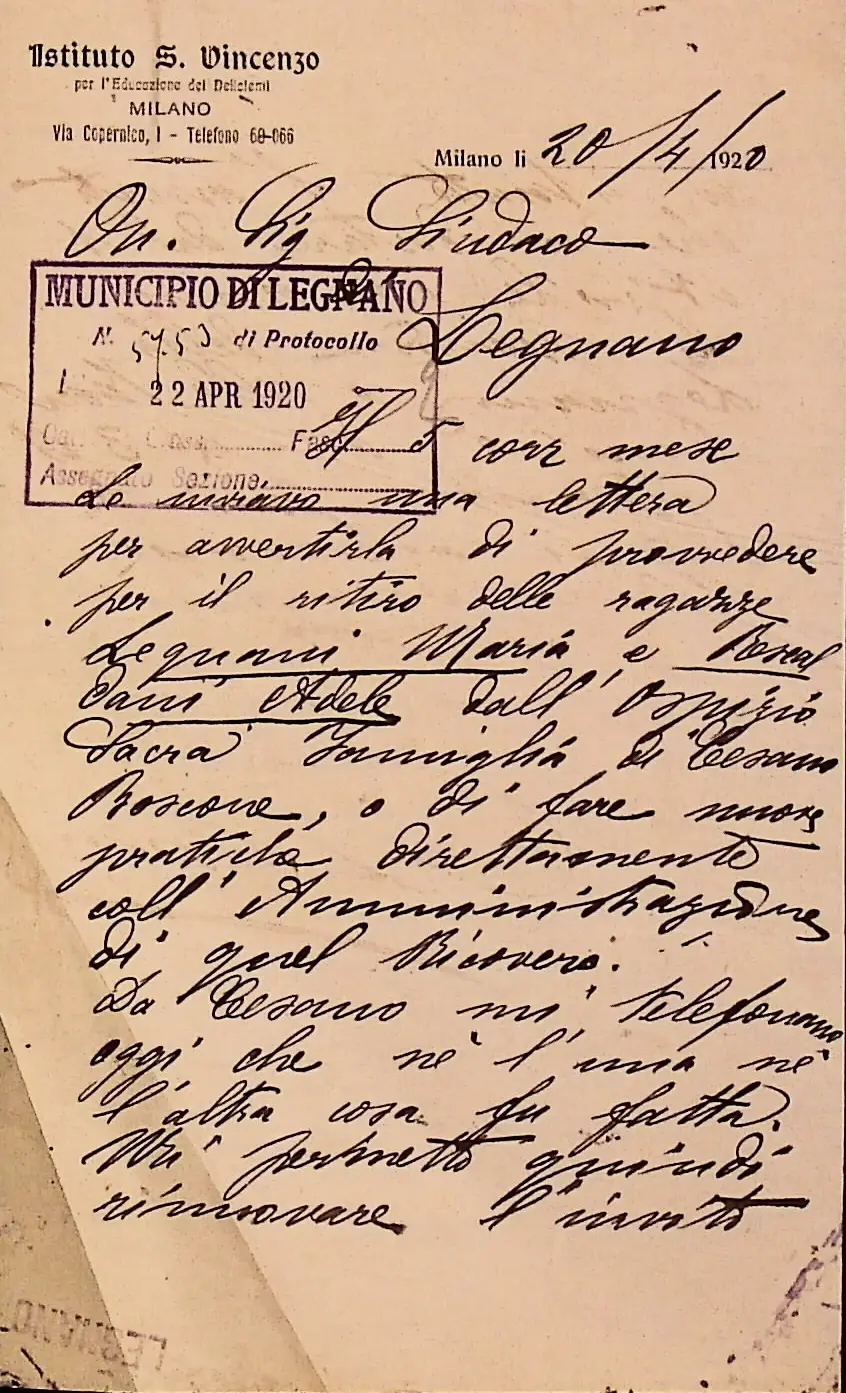 Istituto S. Vincenzo
per l'Educazione dei Deficienti
MILANO
Via Copernico, 1 - Telefono 60-066
Milano li 20/4/1920
On. Sig Sindaco
di
Legnano
MUNICIPIO DI LEGNANO
N. 5753 di Protocollo
22 APR 1920
Cat. Class. Fasc.
Assegnato Sezione
Il 5 corr mese
Le inviavo una lettera
per avvertirla di provvedere
per il ritiro delle ragazze
Legnani Maria e
Adele dall'Ospizio
Sacra Famiglia di Cesano
Boscone, o di fare nuove
pratiche direttamente
coll'Amministrazione
di quel Ricovero.
Da Cesano mi telefonano
oggi che nè l'una nè
l'altra cosa fu fatta.
Mi permetto quindi
rinnovare l'invito
LEGNANO